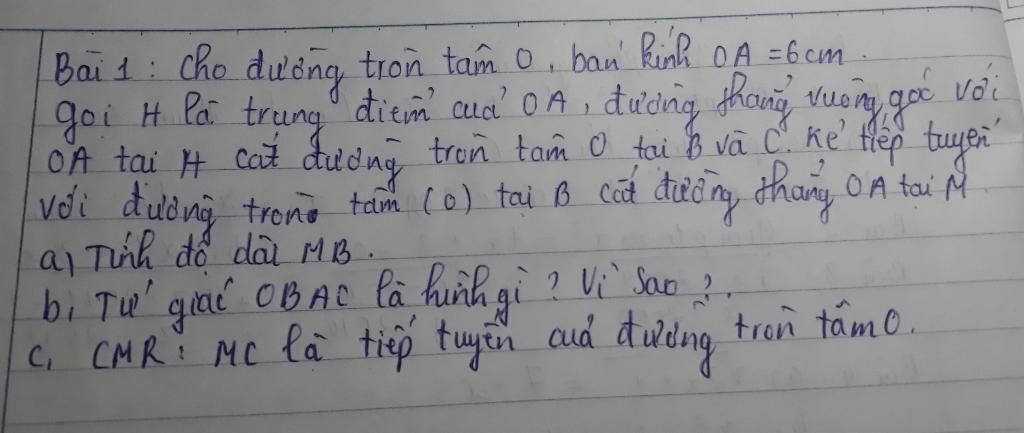 Bài 1: Cho đường tròn tâm O, bán kính OA = 6cm.
gọi H là trung điểm của OA, đường thẳng vuông góc với
OA tại H cắt đường tròn tâm O tại B và C. Kẻ tiếp tuyến
với đường tròn tâm (O) tại B cắt đường thẳng OA tại M
a) Tính độ dài MB.
b, Tứ giác OBAC là hình gì? Vì sao?.
c, CMR: MC là tiếp tuyến của đường tròn tâm O.